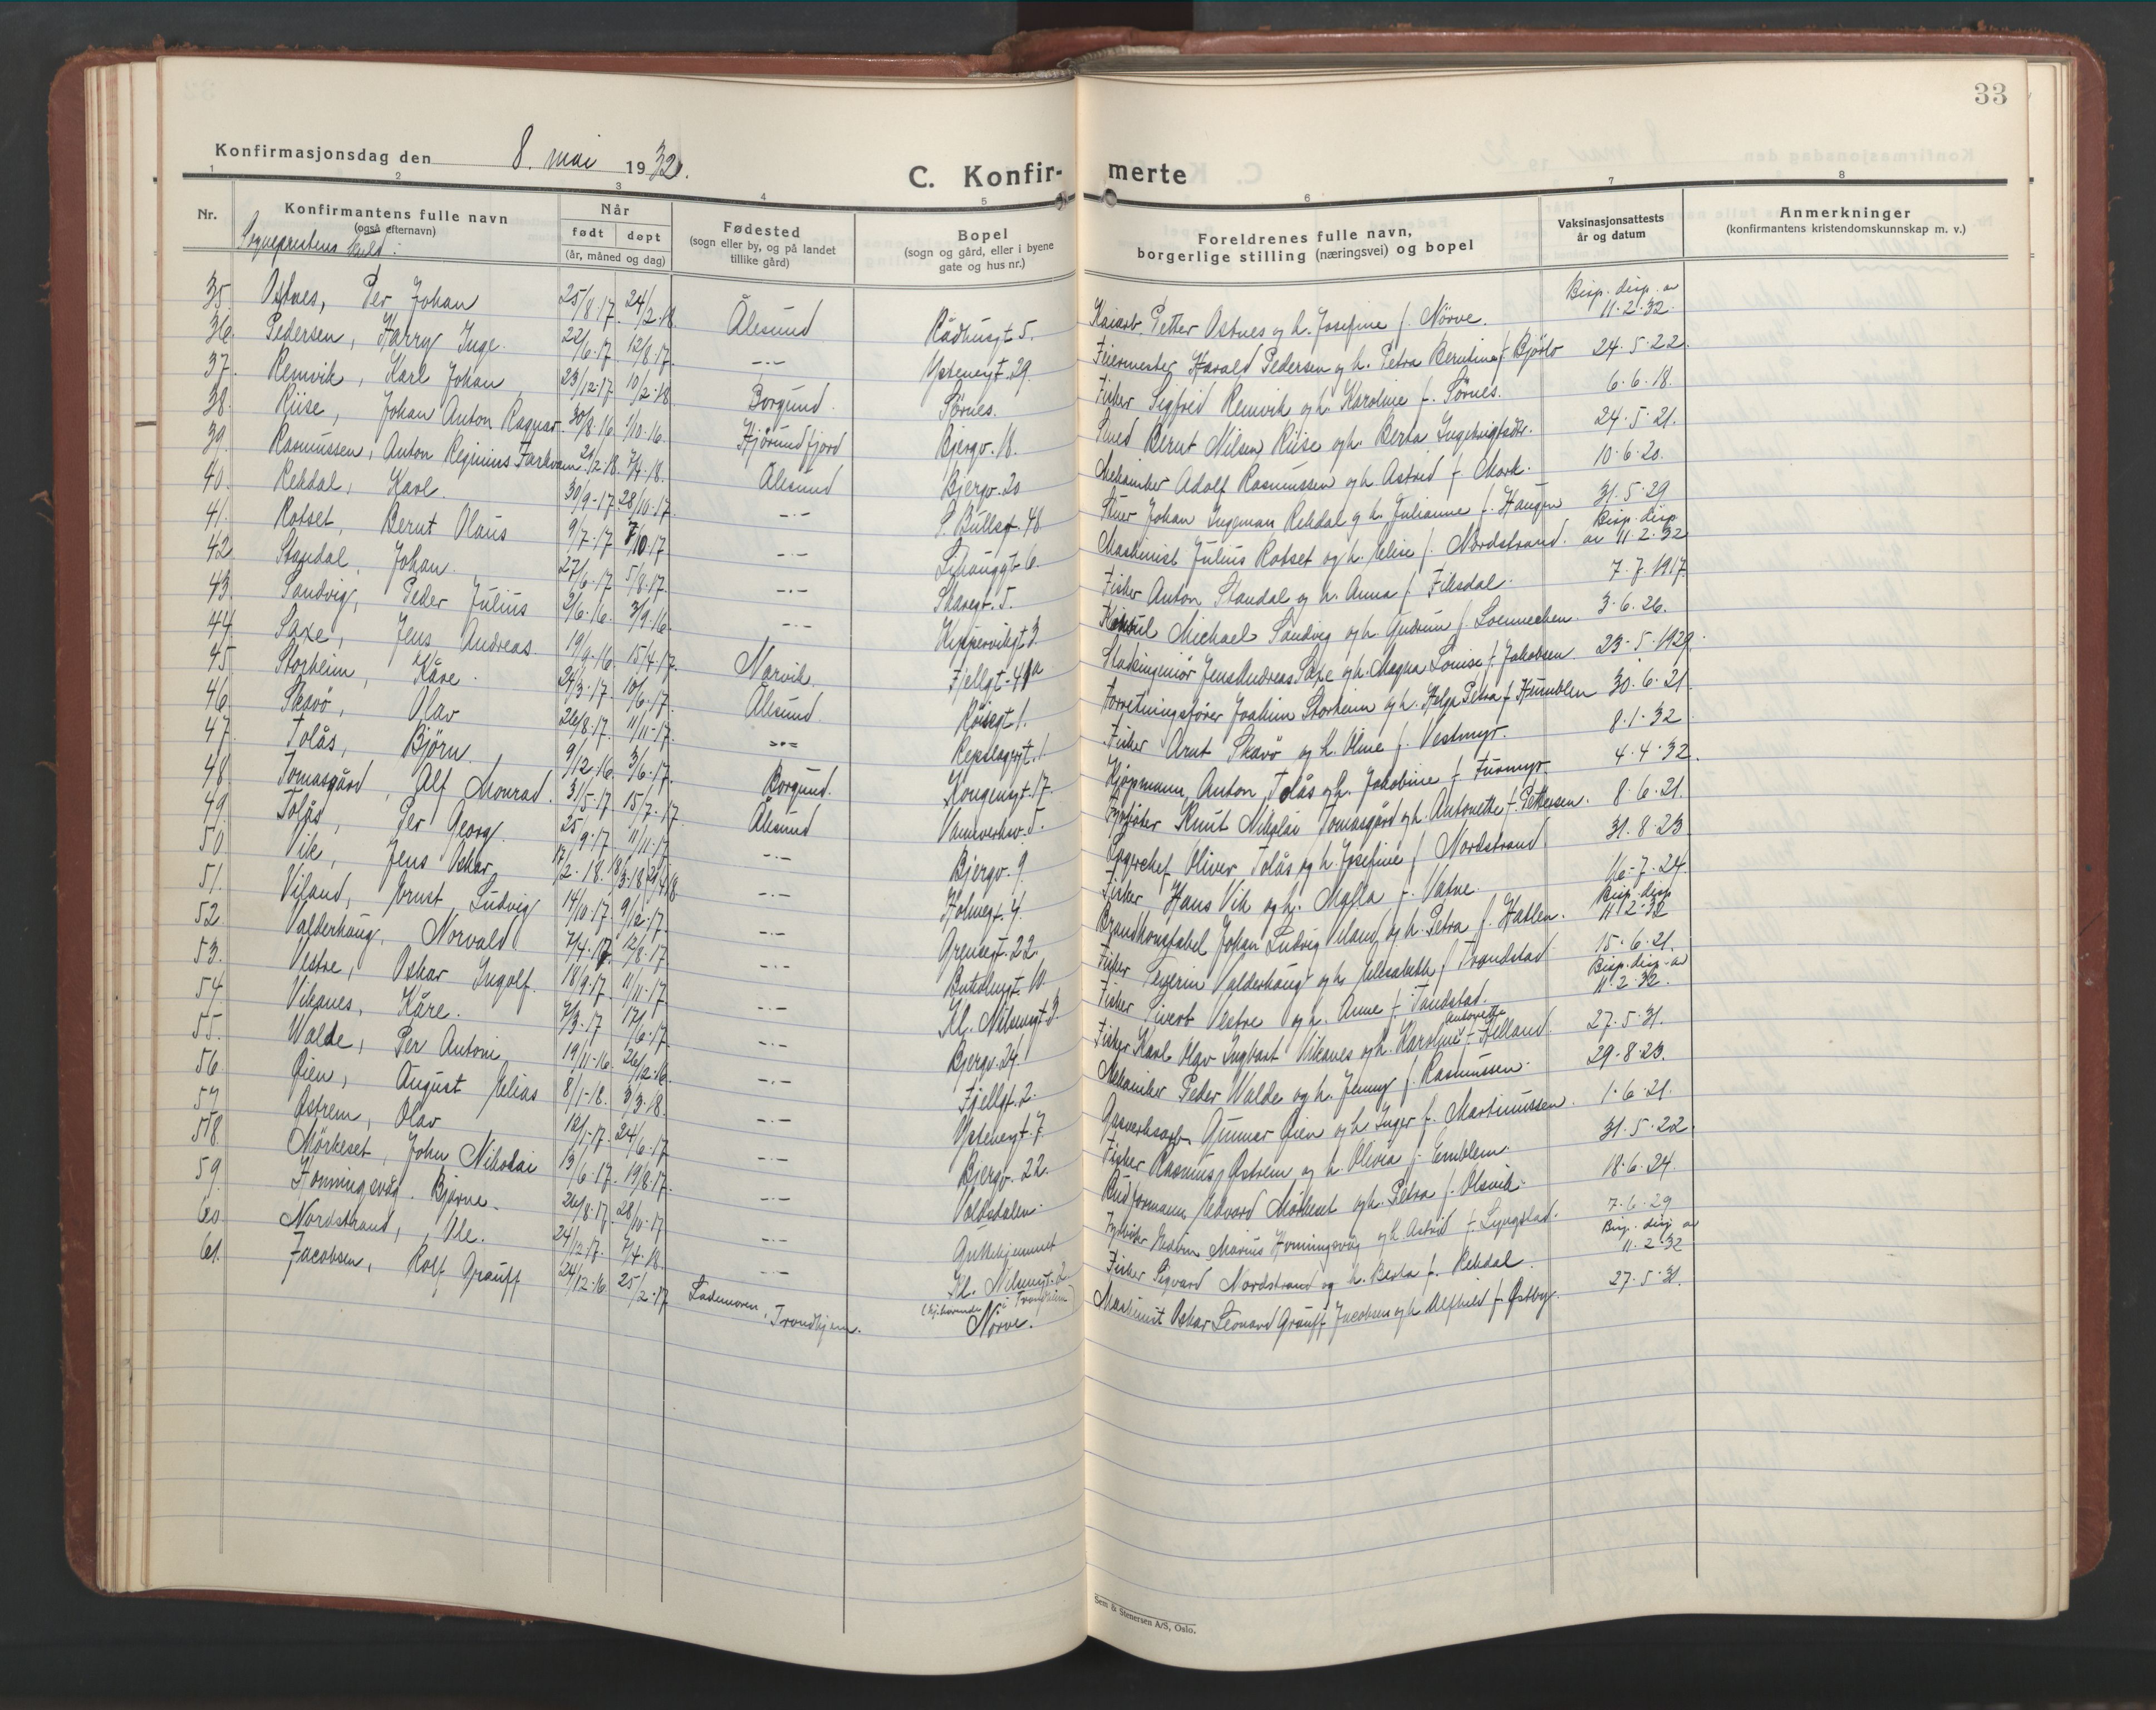 33
Konfirmasjonsdag den 8. mai 1932.
C. Konfir- merte
1 2 3 4 5 6 7 8
Nr. Konfirmantens fulle navn (også efternavn) Når født døpt (år, måned og dag) Fødested (sogn eller by, og på landet tillike gård) Bopel (sogn og gård, eller i byene gate og hus nr.) Foreldrenes fulle navn, borgerlige stilling (næringsvei) og bopel Vaksinasjonsattests år og datum Anmerkninger (konfirmantens kristendomskunnskap m. v.)
Sogneprestens
35. Ostnes, Per Johan 25/8-17. 24/2-18. Ålesund Rådhusgt 5. Kaiarb. Petter Ostnes og h. Josefine f. Nörve. Bisp. disp. av 11.2.32.
36. Pedersen, Harry Inge. 22/6-17. 12/8-17. -.- Ystenesgt. 29. Feiermester Harald Pedersen og h. Petra Berntine f. Björlo 24.5.22.
37. Remvik, Karl Johan 23/12-17 10/2-18. Borgund. Sörnes. Fisker Sigfred Remvik og h. Karoline f. Sörnes. 6.6.18.
38. Riise, Johan Anton Ragnar. 30/8-16 1/10-16. Hjörundfjord Bjergv. 18. Smed Bernt Nilsen Riise og h. Berta 24.5.21.
39. Rasmussen, Anton Reginius 2-18. 7/4-18. Ålesund Bjergv. 20 Mekaniker Adolf Rasmussen og h. Astrid f. Mork. 10.6.20.
40. Rekdal, Karl. 30/9-17 28/10-17. -.- S. Bullsgt. 48 Stuer Johan Ingeman Rekdal og h. Julianne f. Haugen 31.5.29
41. Rotset, Bernt Olaus 9/7-17 7/10-17 -.- 6. Maskinist Julius Rotset og h. Elise f. Nordstrand. Bisp. disp. av 11.2.32
42. Standal, Johan. 27/6-17. 5/8-17. -.- Skaregt. 5. Fisker Anton Standal og h. Anna f. Fiksdal. 7.7.1917
43. Sandvig, Peder Julius 2/6-16. 3/9-16. -.- Kippervikgt 3. Konsul Michael Sandvig og h. Gudrun f. Loennechen. 3.6.26.
44. Saxe, Jens Andreas. 19/9-16. 15/4-17. Narvik. Fjellgt. Stadsingeniör Jens Andreas Saxe og h. Magna Louise f. Jakobsen. 23-5.1929.
45 Storheim, Kåre. 24/3-17. 10/6-17. Ålesund. Röisegt 1. Forretningsförer Joakim Storheim og h. Helga Petra f. Humblen 30.6.21.
46. Skavö, Olav 26/8-17. 11/11-17. -.- Repslagergt. 1 Fisker Arnt Skavö og h. Oline f. Vestmyr. 8.1.32
47. Tolås, Björn. 9/12-16. 3/6-17. Borgund. Kongensgt. 17. Kjöpmann Anton Tolås og h. Jakobine f. Furmyr. 4.4.32.
48. Tomasgård, Alf Monrad. 31/5-17 15/7-17. Ålesund Vannverksv. 5. Fyrböter Knut Nikolai Tomasgård og h. Antonette f. Pettersen. 8.6.21.
49. Tolås, Per Georg. 25/9-17 11/11-17 -.- Bjergv. 9 Lagerchef Oliver Tolås og h. Josefine f. Nordstrand. 31.8.23
50 Vik, Jens Oskar 17/2-18. -.- Holmegt. 4. Fisker Hans Vik og h. Malla f. Vatne. 16-7.24.
51. Viland, Ernst Ludvig 14/10-17. 9/12-17 -.- Grensegt. 22. Brandkonstabel Johan Ludvig Viland og h. Petra f. Hatlen. Bisp. disp. 11.2.32
52. Valderhaug, Norvald 7/4-17. 12/8-17 -.- 10. Fisker Severin Valderhaug og h. Elisabeth f. Trandstad. 15.6.21.
53. Vestre, Oskar Ingolf. 18/9-17. 11/11-17 -.- Kl. Nilsengt 3. Fisker Sivert Vestre og h. Anne f. Tandstad. Bisp. disp. av 11.2.32.
54. Vikanes, Kåre. 7/3-17 17/6-17. -.- Bjergv. 24. Fisker Karl Olav Ingbart Vikanes og h. Karoline Antonette f. Helland. 27.5.31.
55. Walde, Per Antoni 19/11-16. 26/12-16. -.- Fjellgt. 2. Mekaniker Peder Walde og h. Jenny f. Rasmussen. 29-8.23.
56 Öien, August Elias 8/1-18. 3/3-18. -.- Ystenesgt. 7. Gasverksarb. Gunnar Öien og h. Inger f. Martinussen. 1.6.21.
57 Östrem, Olav 24/6-17 -.- Bjergv. 22. Fisker Rasmus Östrem og h. Olivia f. Emblem. 31.5.22.
58. Mörkeset, John Nikolai 13/6-17. 19/8-17. -.- Volsdalen. Budformann Edvard Mörkeset og h. Petra f. Olsvik. 18.6.24.
59. Honningsvåg. Bjarne. 26/8-17. 28/10-17 -.- Fyrböter Edvin Marius Honningsvåg og h. Astrid f. Lyngstad. 7.6.29
60. Nordstrand, Ole. 24/12-17. 7/4-18. -.- Kl. Nilsengt. 2 Fisker Sigvard Nordstrand og h. Berta f. Rekdal. Bisp. disp. av 11.2.32
61. Jacobsen, Rolf Grauff 24/12-16. 25/2-17 Lademoen, Trondhjem. (hj.hörende i Trondhjem) Nörve. Maskinist Oskar Leonard Grauff Jacobsen og h. Alfhild f. Östby. 27.5.31.
Sem & Stenersen A/S, Oslo.